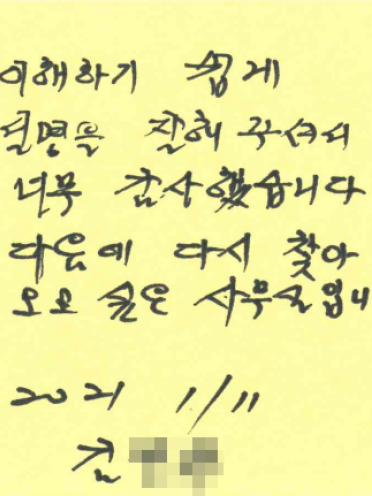 이해하기 쉽게
설명을 잘해 주셔서
너무 감사했습니다
다음에 다시 찾아
오고 싶은 사무실입니
2021 1/11
김